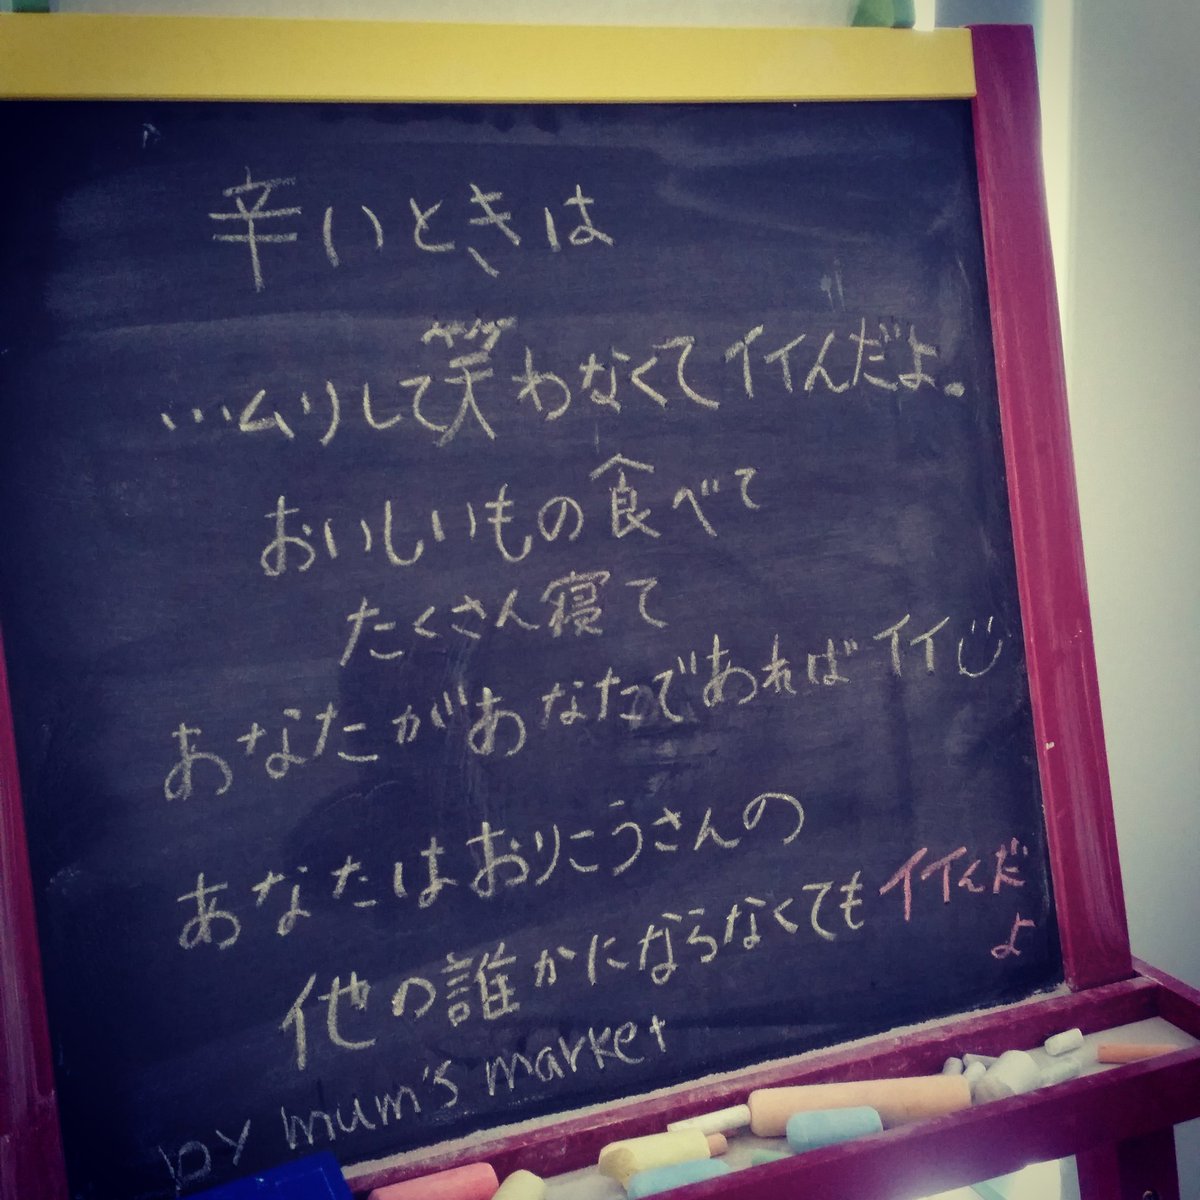 辛いときは
…ムリして笑わなくてイイんだよ。
おいしいもの食べて
たくさん寝て
あなたがあなたであればイイ
あなたはおりこうさんの
他の誰かにならなくてもイイんだ
よ
by mum's market